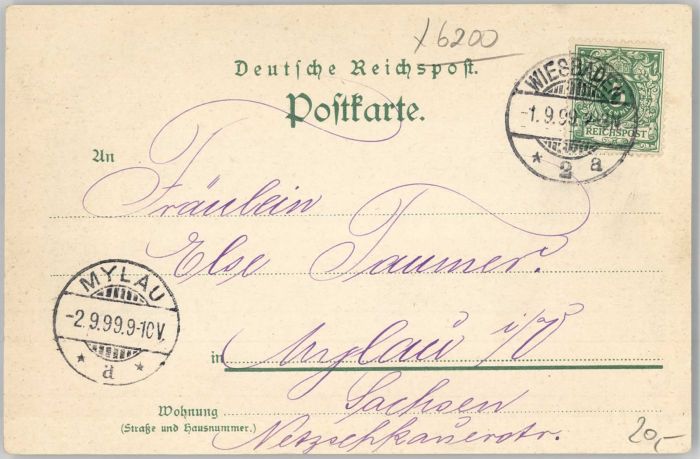 x 6200
Deutsche Reichspost.
Postkarte.
WIESBADEN
-1.9.99.
* 2 a
5
REICHSPOST
An
Fräulein
Else Taumer.
MYLAU
-2.9.99.9-10V.
* a *
in Mylau i/V
Sachsen
Wohnung
(Straße und Hausnummer.)
Netzschkauerstr.
20,-